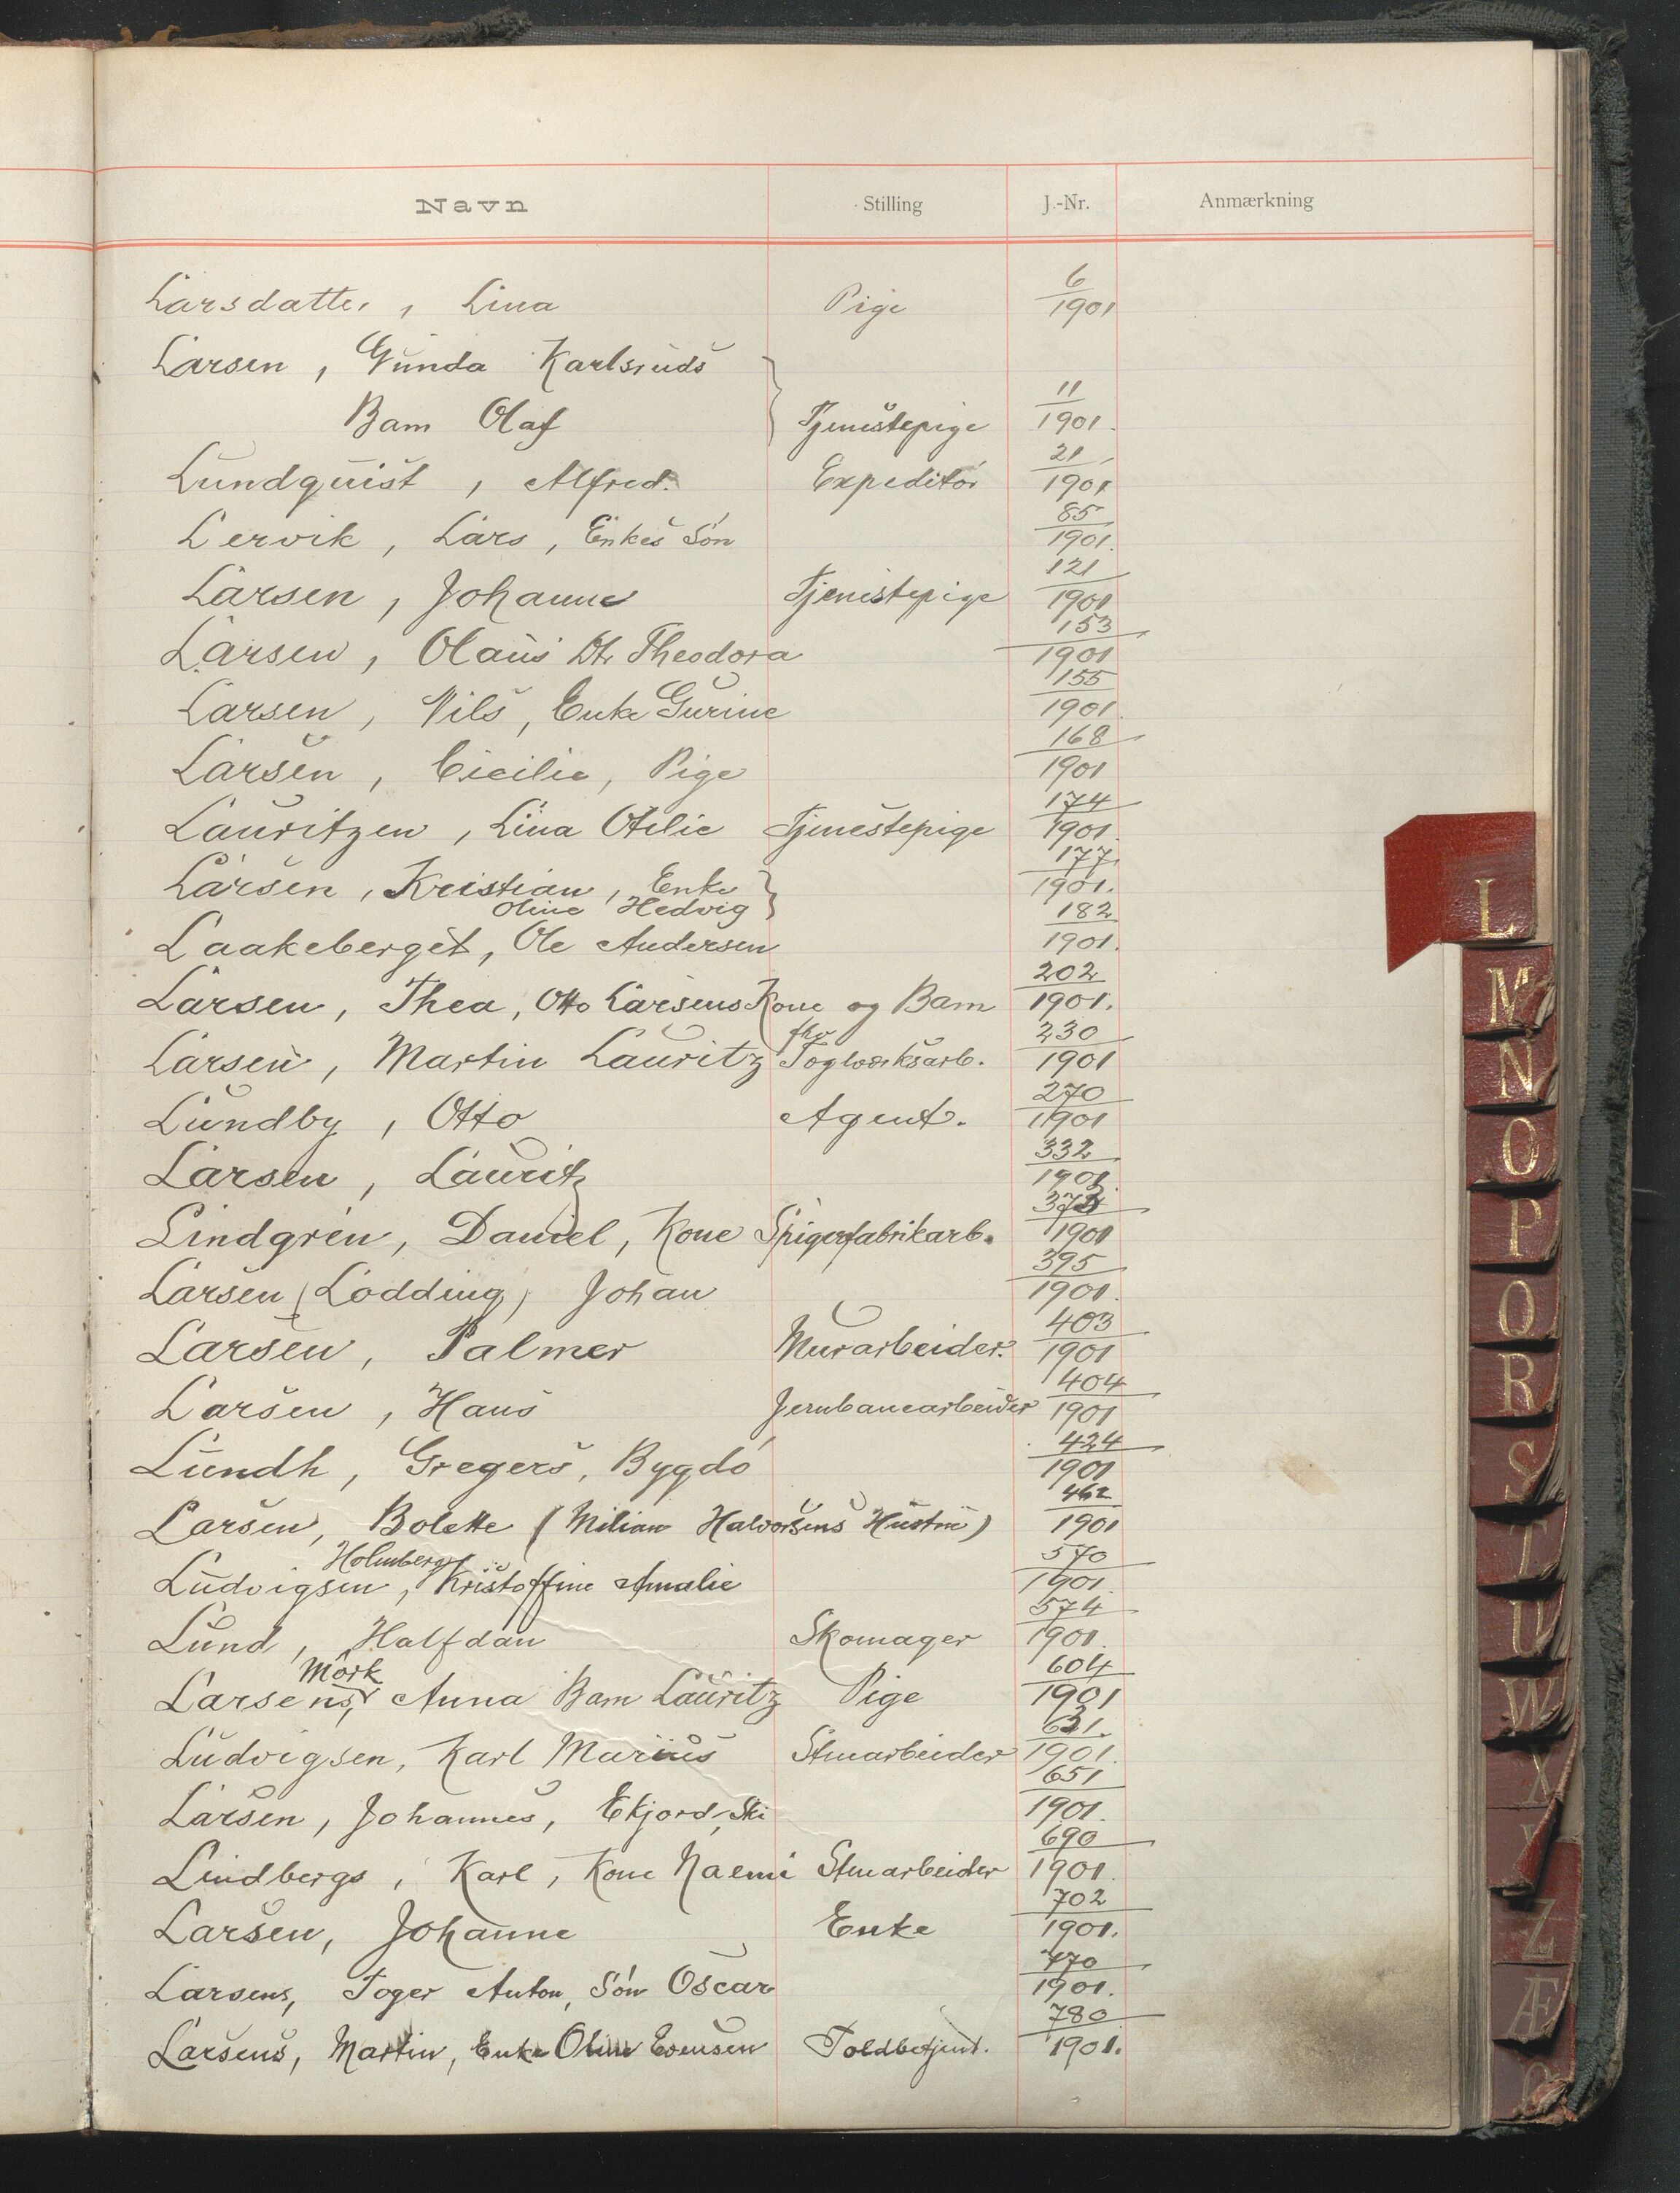 Navn Stilling J.-Nr. Anmærkning
Larsdatter, Lina Pige 6/1901
Larsen, Gunda Karlsruds
Barn Olaf Tjenestepige 11/1901
Lundquist, Alfred. Expeditør 21/1901
Lervik, Lars, Enkes Søn 85/1901.
Larsen, Johanne Tjenestepige 121/1901
Larsen, Olaus Dtr Theodora 153/1901
Larsen, Nils, Enke Gurine 155/1901
Larsen, Cicilie, Pige 168/1901
Lauritzen, Lina Otilie Tjenestepige 174/1901
Larsen, Kristian, Enke 177/1901.
Oline Hedvig
Laakeberget, Ole Andersen 182/1901.
Larsen, Thea, Otto Larsens Kone og Barn 202/1901.
fhv
Larsen, Martin Lauritz Teglværksarb. 230/1901
Lundby, Otto Agent. 270/1901
Larsen, Lauritz 332/1901
Lindgren, Daniel, Kone Spigerfabrikarb. /1901
Larsen (Lodding) Johan 395/1901.
Larsen, Palmer Murarbeider. 403/1901
Larsen, Hans Jernbanearbeider 404/1901
Lundh, Gregers, Bygdø 424/1901
Larsen, Bolette (Milian Halvorsens Hustru) 462/1901
Holmberg
Ludvigsen, Kristoffine Amalie 570/1901.
Lund, Halfdan Skomager 574/1901.
Mørk
Larsens, Anna Barn Lauritz Pige 604/1901
Ludvigsen, Karl Marius Stenarbeider 631/1901.
Larsen, Johannes, Ski 651/1901.
Lindbergs, Karl, Kone Naemi Stenarbeider 690/1901.
Larsen, Johanne Enke 702/1901.
Larsens, Toger Anton, Søn Oscar 770/1901.
Larsens, Martin, Enke Oline Evensen Toldbetjent. 780/1901.
L
M
N
O
P
Q
R
S
T
U
W
X
Y
Z
Æ
Ø